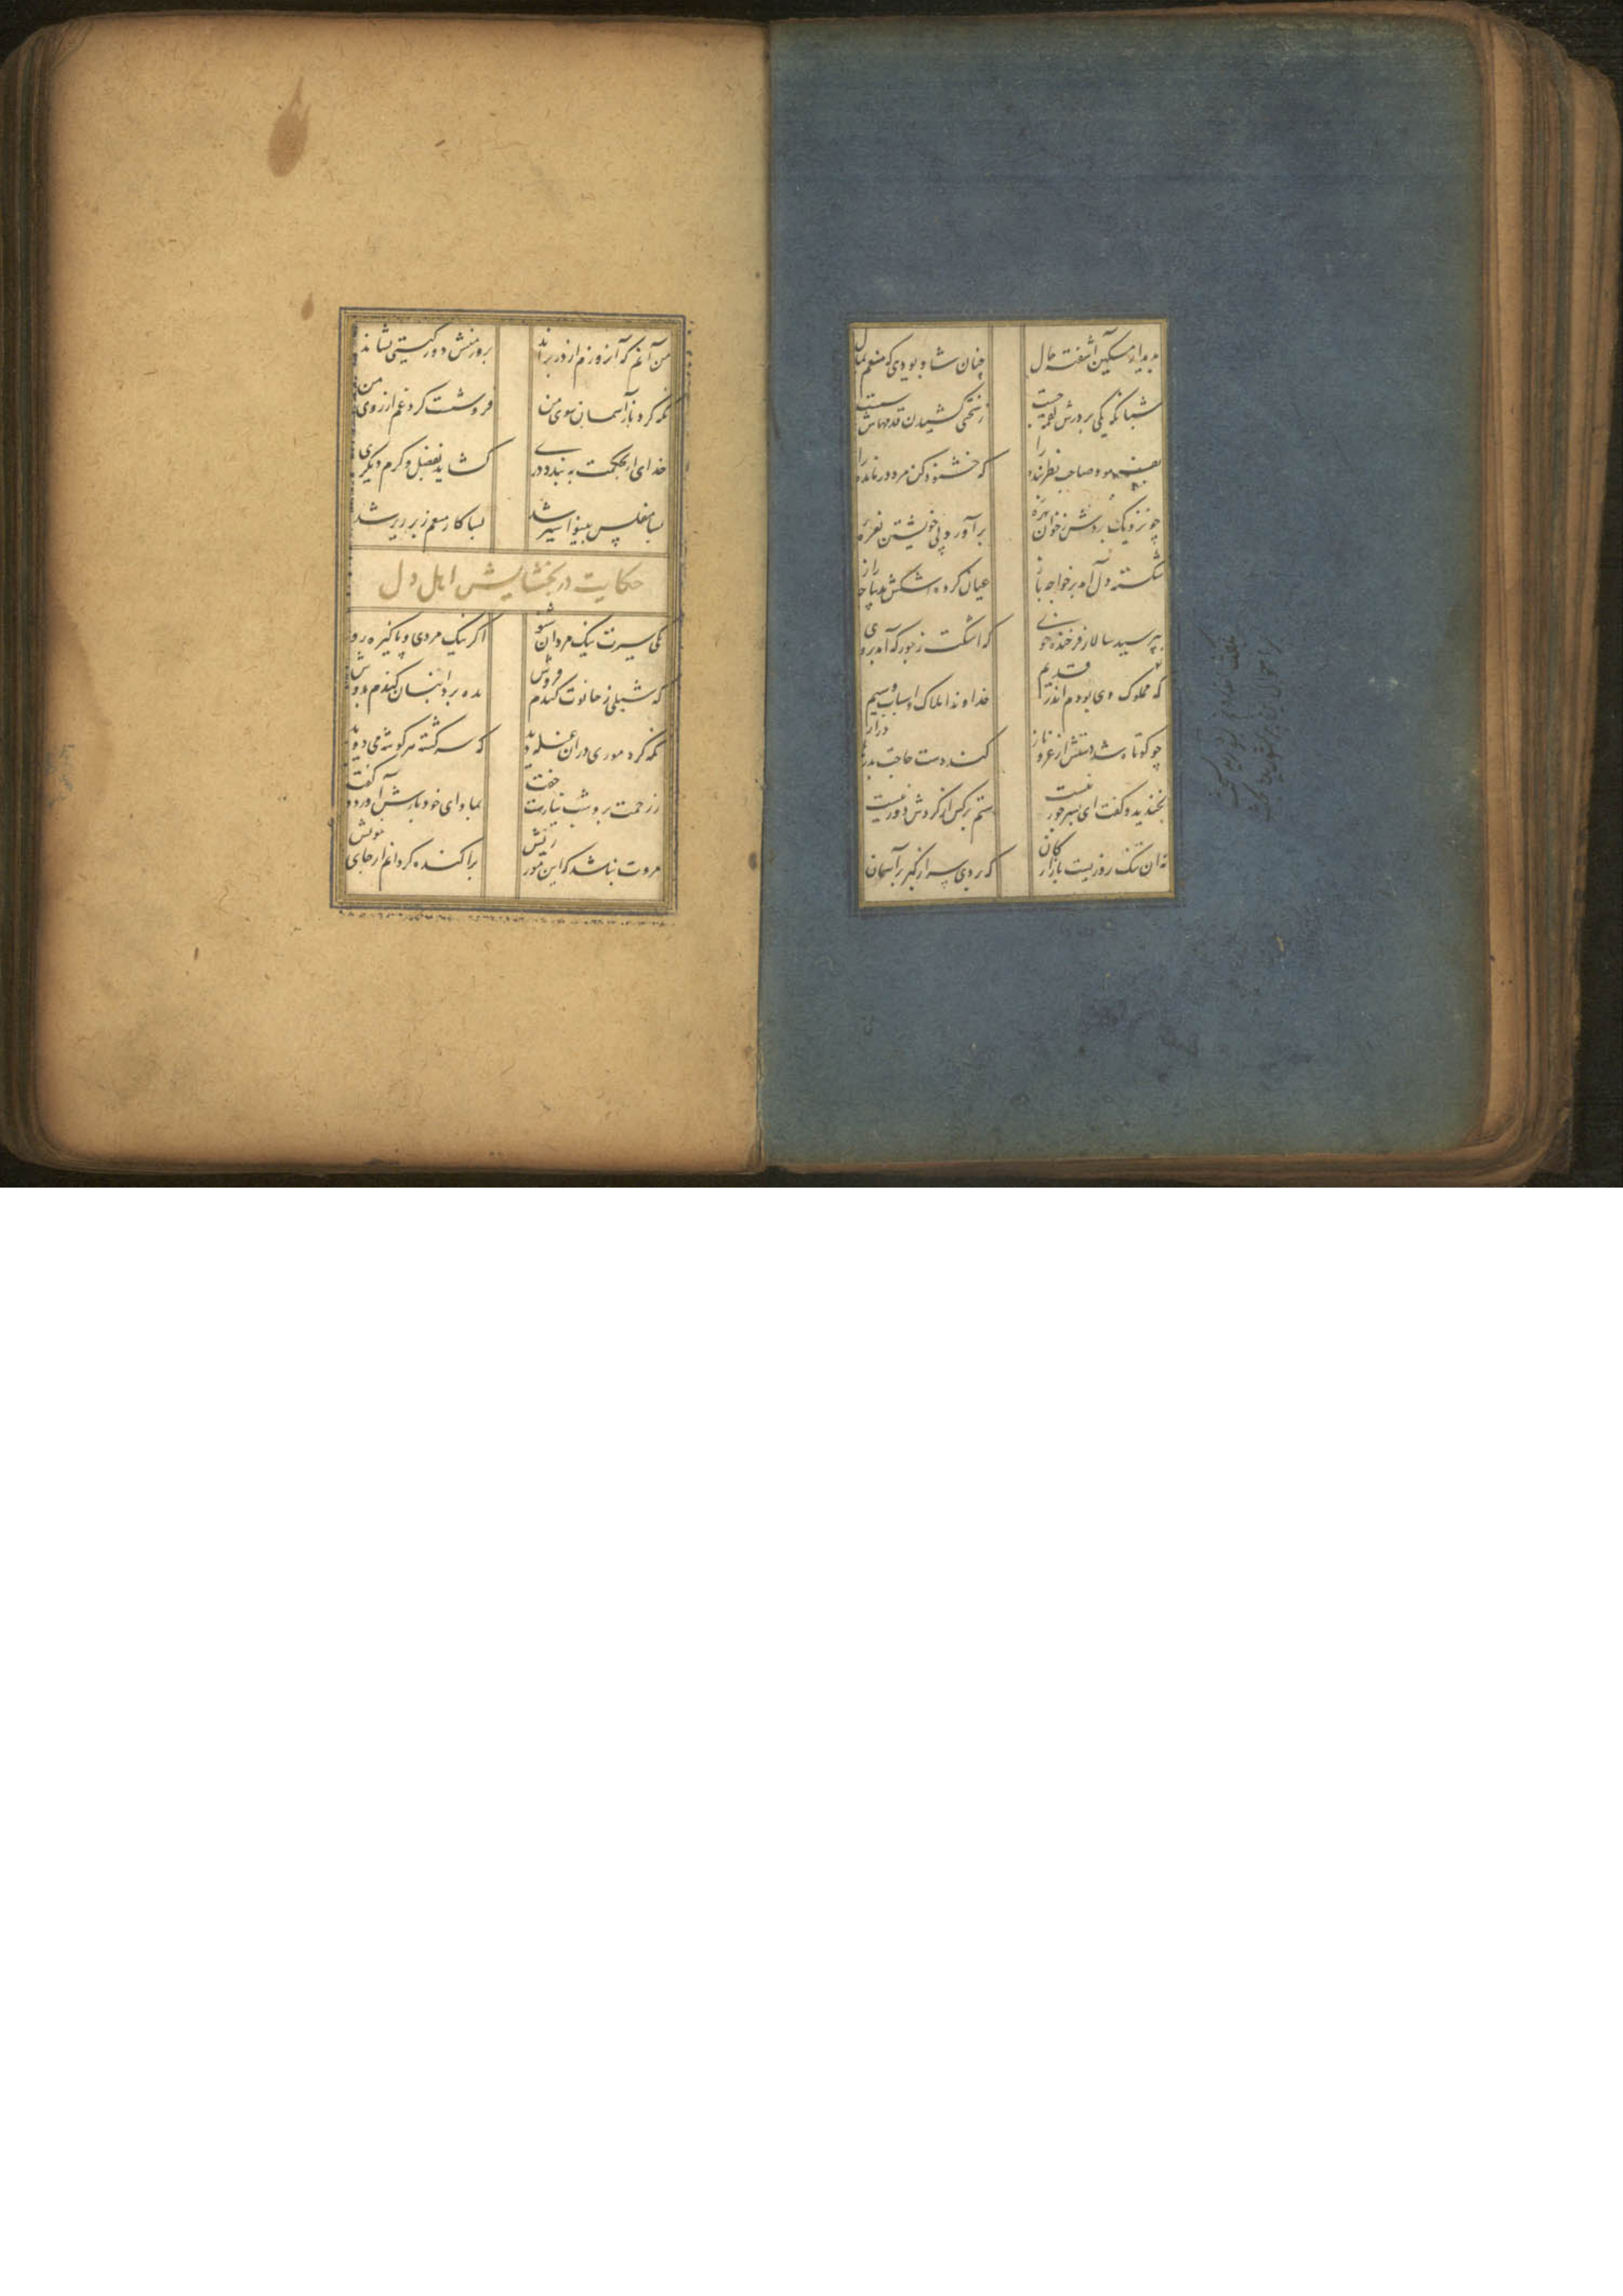 بدیدار مسکین آشفته حال
چنان شاد بودی که منعم بمال
شبانگه یکی بر درش لقمه جست
ز سختی کشیدن قدمهاش سست
بفرمود صاحب نظر بنده را
که خشنود کن مرد درمانده را
چو نزدیک بردش ز خوان بهره
برآورد بی خویشتن نعره
شکسته دل آمد بر خواجه باز
عیان کرده اشکش بدیباچه راز
بپرسید سالار فرخنده خوی
که اشکت ز جور که آمد بروی
که مملوک وی بودم اندر قدیم
خداوند املاک و اسباب و سیم
چو کوتاه شد دستش از عز و ناز
کند دست حاجت بدرها دراز
بخندید و گفت ای پسر جور نیست
ستم بر کس از گردش دور نیست
نه آن تنک روزیست بازارگان
که بردی سر از کبر بر آسمان
من آنم که آن روزم از در براند
بروز منش دور گیتی نشاند
نگه کرد باز آسمان سوی من
فرو شست گرد غم از روی من
خدای ار بحکمت ببندد دری
گشاید بفضل و کرم دیگری
بسا مفلس بینوا سیر شد
بسا کار منعم زبر زیر شد
حکایت در بخشایش اهل دل
یکی سیرت نیک مردان شنو
اگر نیک مردی و پاکیزه رو
که شبلی ز حانوت گندم فروش
بده برد انبان گندم بدوش
نگه کرد موری در آن غله دید
که سرگشته هر گوشه می دوید
ز رحمت برو شب نیارست خفت
بماوای خود بازش آورد و گفت
مروت نباشد که این مور ریش
پراکنده گردانم از جای خویش